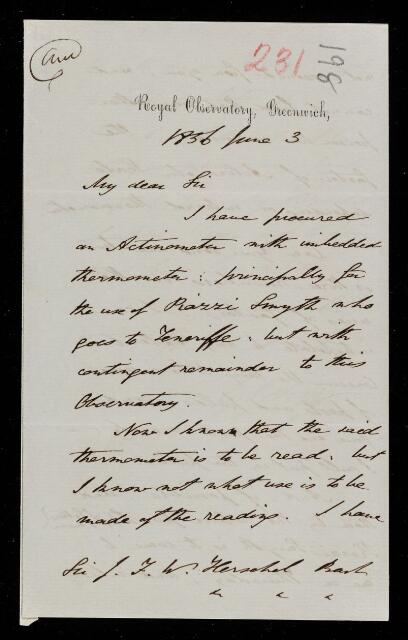 231
198
Royal Observatory, Greenwich,
1856 June 3
My dear Sir
I have procured
an Actinometer with imbedded
thermometer : principally for
the use of Piazzi Smyth who
goes to Teneriffe, but with
contingent remainder to this
Observatory.
Now I know that the said
thermometer is to be read, but
I know not what use is to be
made of the reading. I have
Sir J. F. W. Herschel Bart
" " "